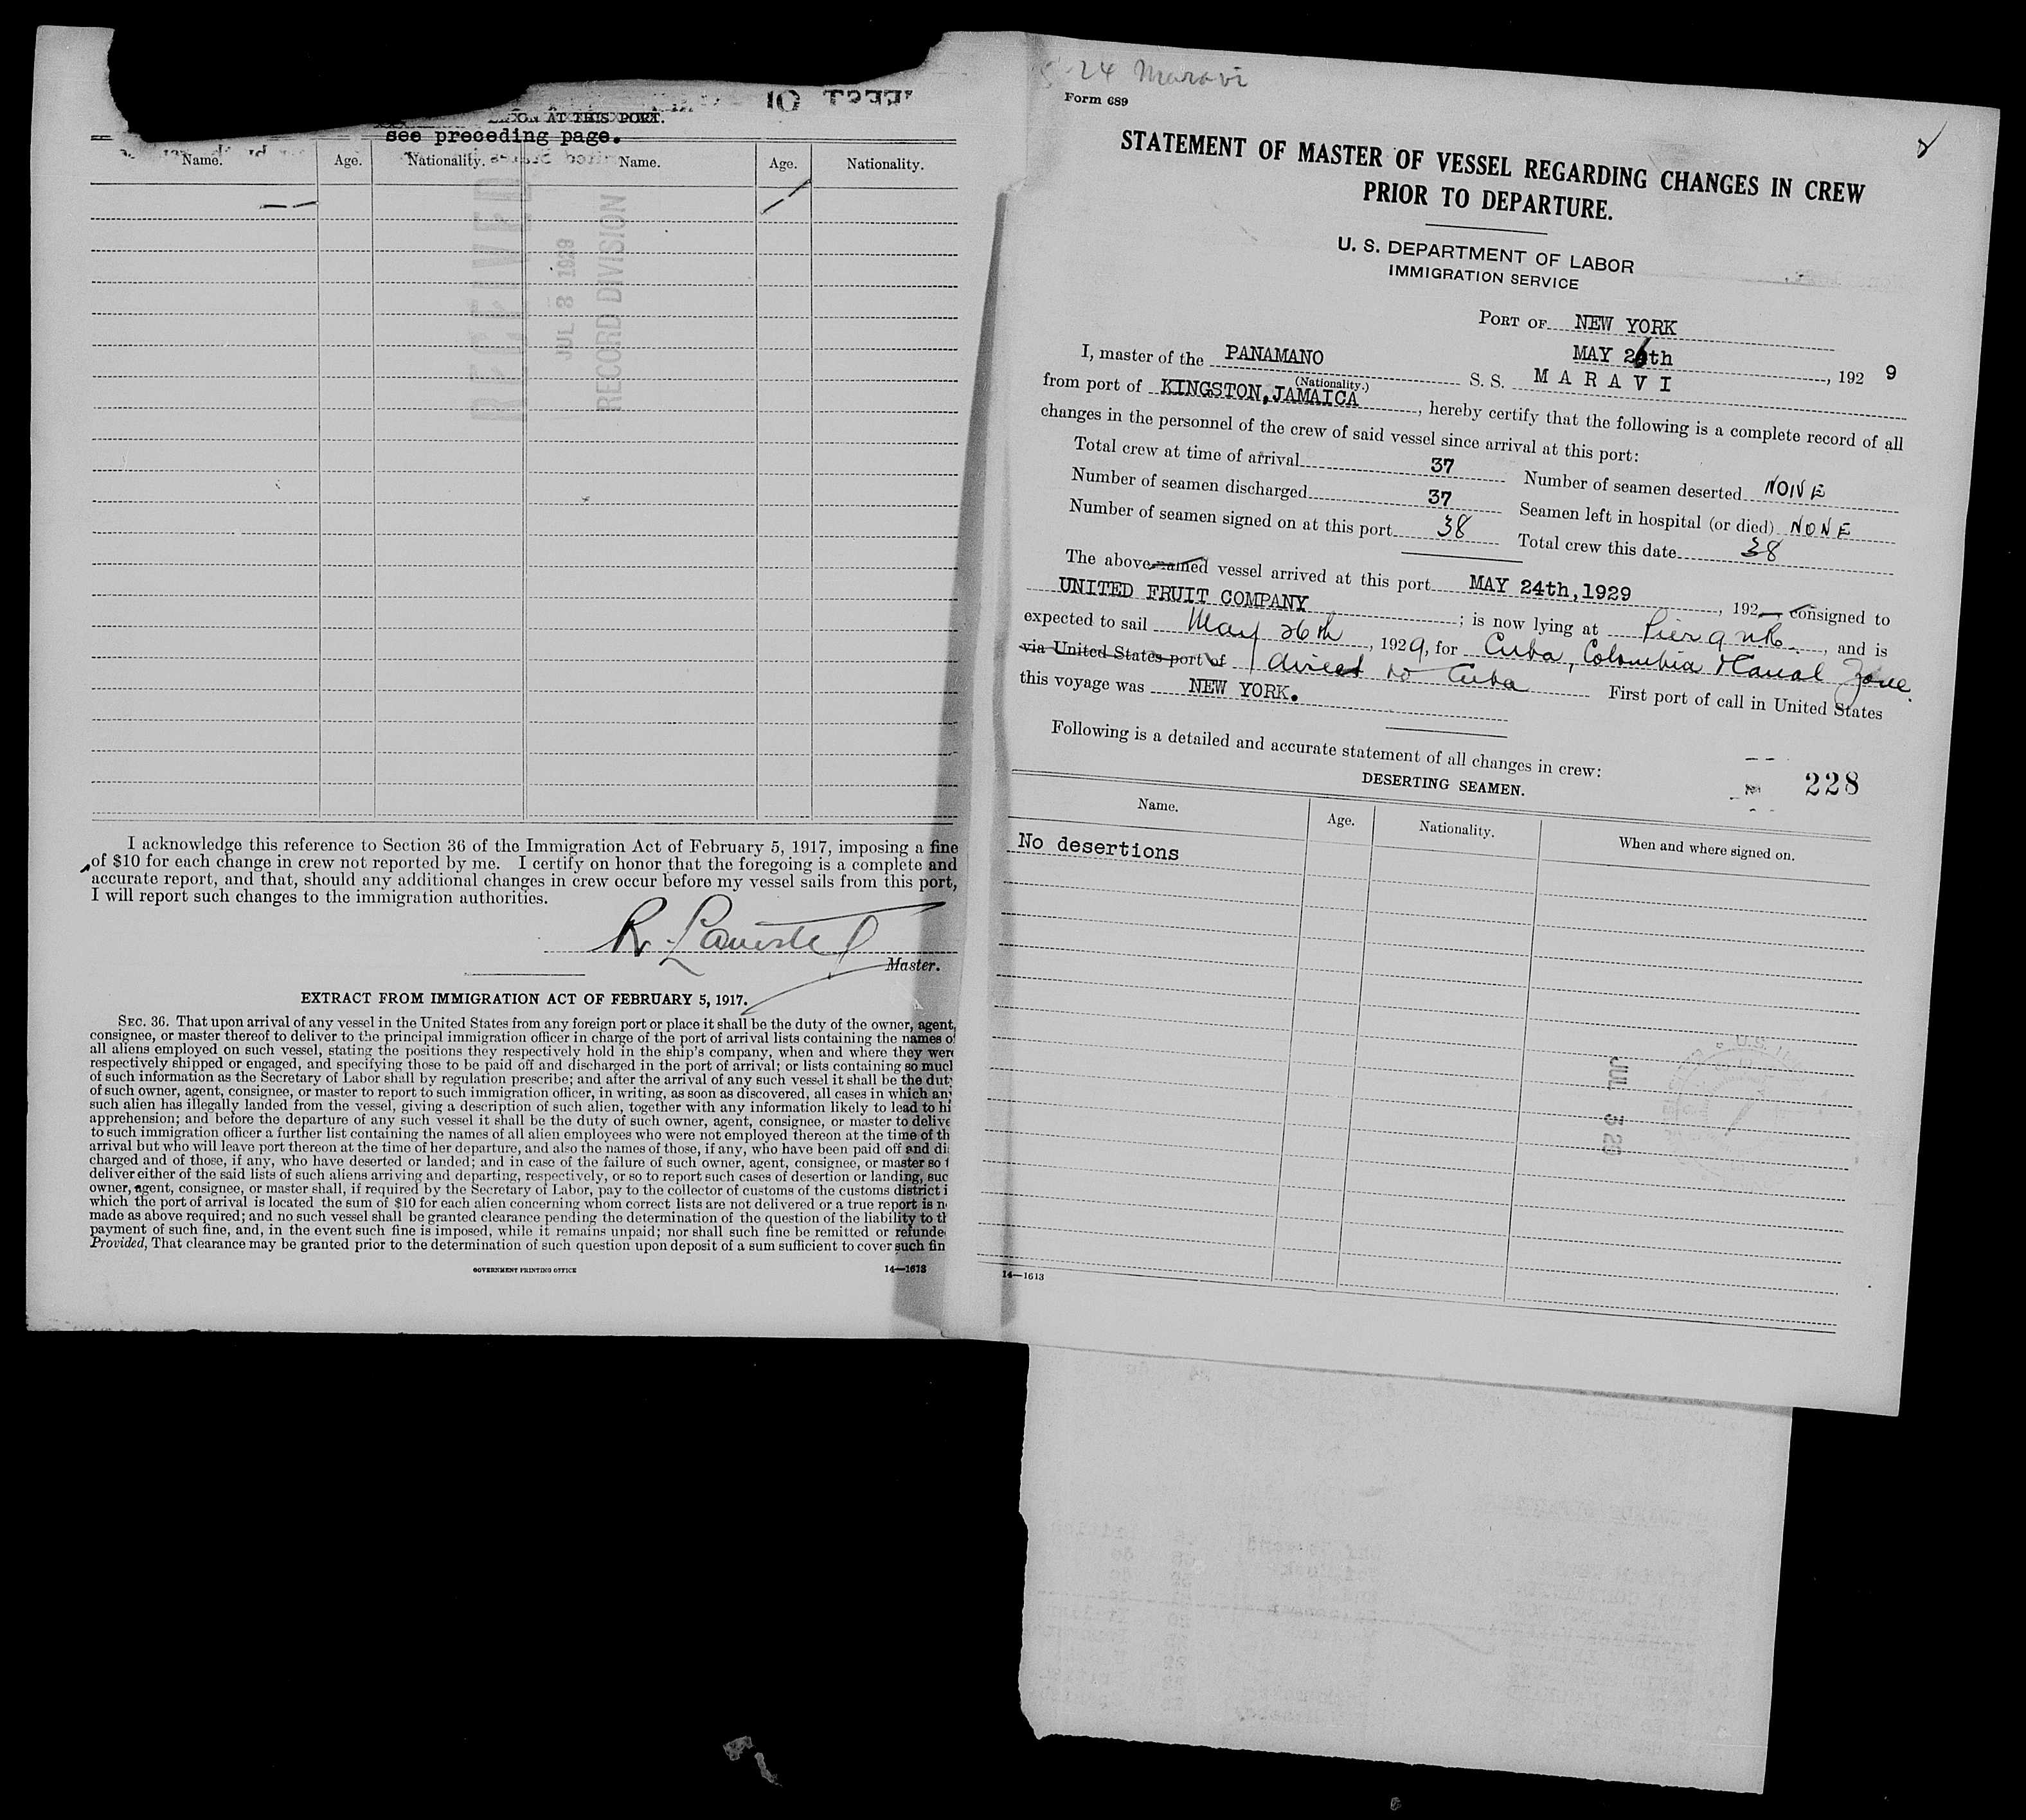 see preceding page.
Name. Age. Nationality. Name. Age. Nationality.
RECEIVED
JUL 3 1929
RECORD DIVISION
I acknowledge this reference to Section 36 of the Immigration Act of February 5, 1917, imposing a fine
of $10 for each change in crew not reported by me. I certify on honor that the foregoing is a complete and
accurate report, and that, should any additional changes in crew occur before my vessel sails from this port,
I will report such changes to the immigration authorities.
Master.
EXTRACT FROM IMMIGRATION ACT OF FEBRUARY 5, 1917.
SEC. 36. That upon arrival of any vessel in the United States from any foreign port or place it shall be the duty of the owner, agent,
consignee, or master thereof to deliver to the principal immigration officer in charge of the port of arrival lists containing the names o
all aliens employed on such vessel, stating the positions they respectively hold in the ship's company, when and where they were
respectively shipped or engaged, and specifying those to be paid off and discharged in the port of arrival; or lists containing so much
of such information as the Secretary of Labor shall by regulation prescribe; and after the arrival of any such vessel it shall be the duty
of such owner, agent, consignee, or master to report to such immigration officer, in writing, as soon as discovered, all cases in which any
such alien has illegally landed from the vessel, giving a description of such alien, together with any information likely to lead to hi
apprehension; and before the departure of any such vessel it shall be the duty of such owner, agent, consignee, or master to delive
to such immigration officer a further list containing the names of all alien employees who were not employed thereon at the time of th
arrival but who will leave port thereon at the time of her departure, and also the names of those, if any, who have been paid off and di
charged and of those, if any, who have deserted or landed; and in case of the failure of such owner, agent, consignee, or master so t
deliver either of the said lists of such aliens arriving and departing, respectively, or so to report such cases of desertion or landing, suc
owner, agent, consignee, or master shall, if required by the Secretary of Labor, pay to the collector of customs of the customs district i
which the port of arrival is located the sum of $10 for each alien concerning whom correct lists are not delivered or a true report is n
made as above required; and no such vessel shall be granted clearance pending the determination of the question of the liability to th
payment of such fine, and, in the event such fine is imposed, while it remains unpaid; nor shall such fine be remitted or refunde
Provided, That clearance may be granted prior to the determination of such question upon deposit of a sum sufficient to cover such fin
GOVERNMENT PRINTING OFFICE 14—1613
5-24 Maravi
Form 689
STATEMENT OF MASTER OF VESSEL REGARDING CHANGES IN CREW
PRIOR TO DEPARTURE.
U. S. DEPARTMENT OF LABOR
IMMIGRATION SERVICE
PORT OF NEW YORK
MAY 26th, 1929
I, master of the PANAMANO S. S. MARAVI
(Nationality.)
from port of KINGSTON, JAMAICA, hereby certify that the following is a complete record of all
changes in the personnel of the crew of said vessel since arrival at this port:
Total crew at time of arrival 37 Number of seamen deserted NONE
Number of seamen discharged 37 Seamen left in hospital (or died) NONE
Number of seamen signed on at this port 38 Total crew this date 38
The above-named vessel arrived at this port MAY 24th, 1929, 192 consigned to
UNITED FRUIT COMPANY; is now lying at Pier 9 NR., and is
expected to sail May 26th, 1929, for Cuba, Colombia & Canal Zone.
via United States port of direct to Cuba First port of call in United States
this voyage was NEW YORK.
Following is a detailed and accurate statement of all changes in crew:
228
DESERTING SEAMEN.
Name. Age. Nationality. When and where signed on.
No desertions
JUL 3 29
14—1613